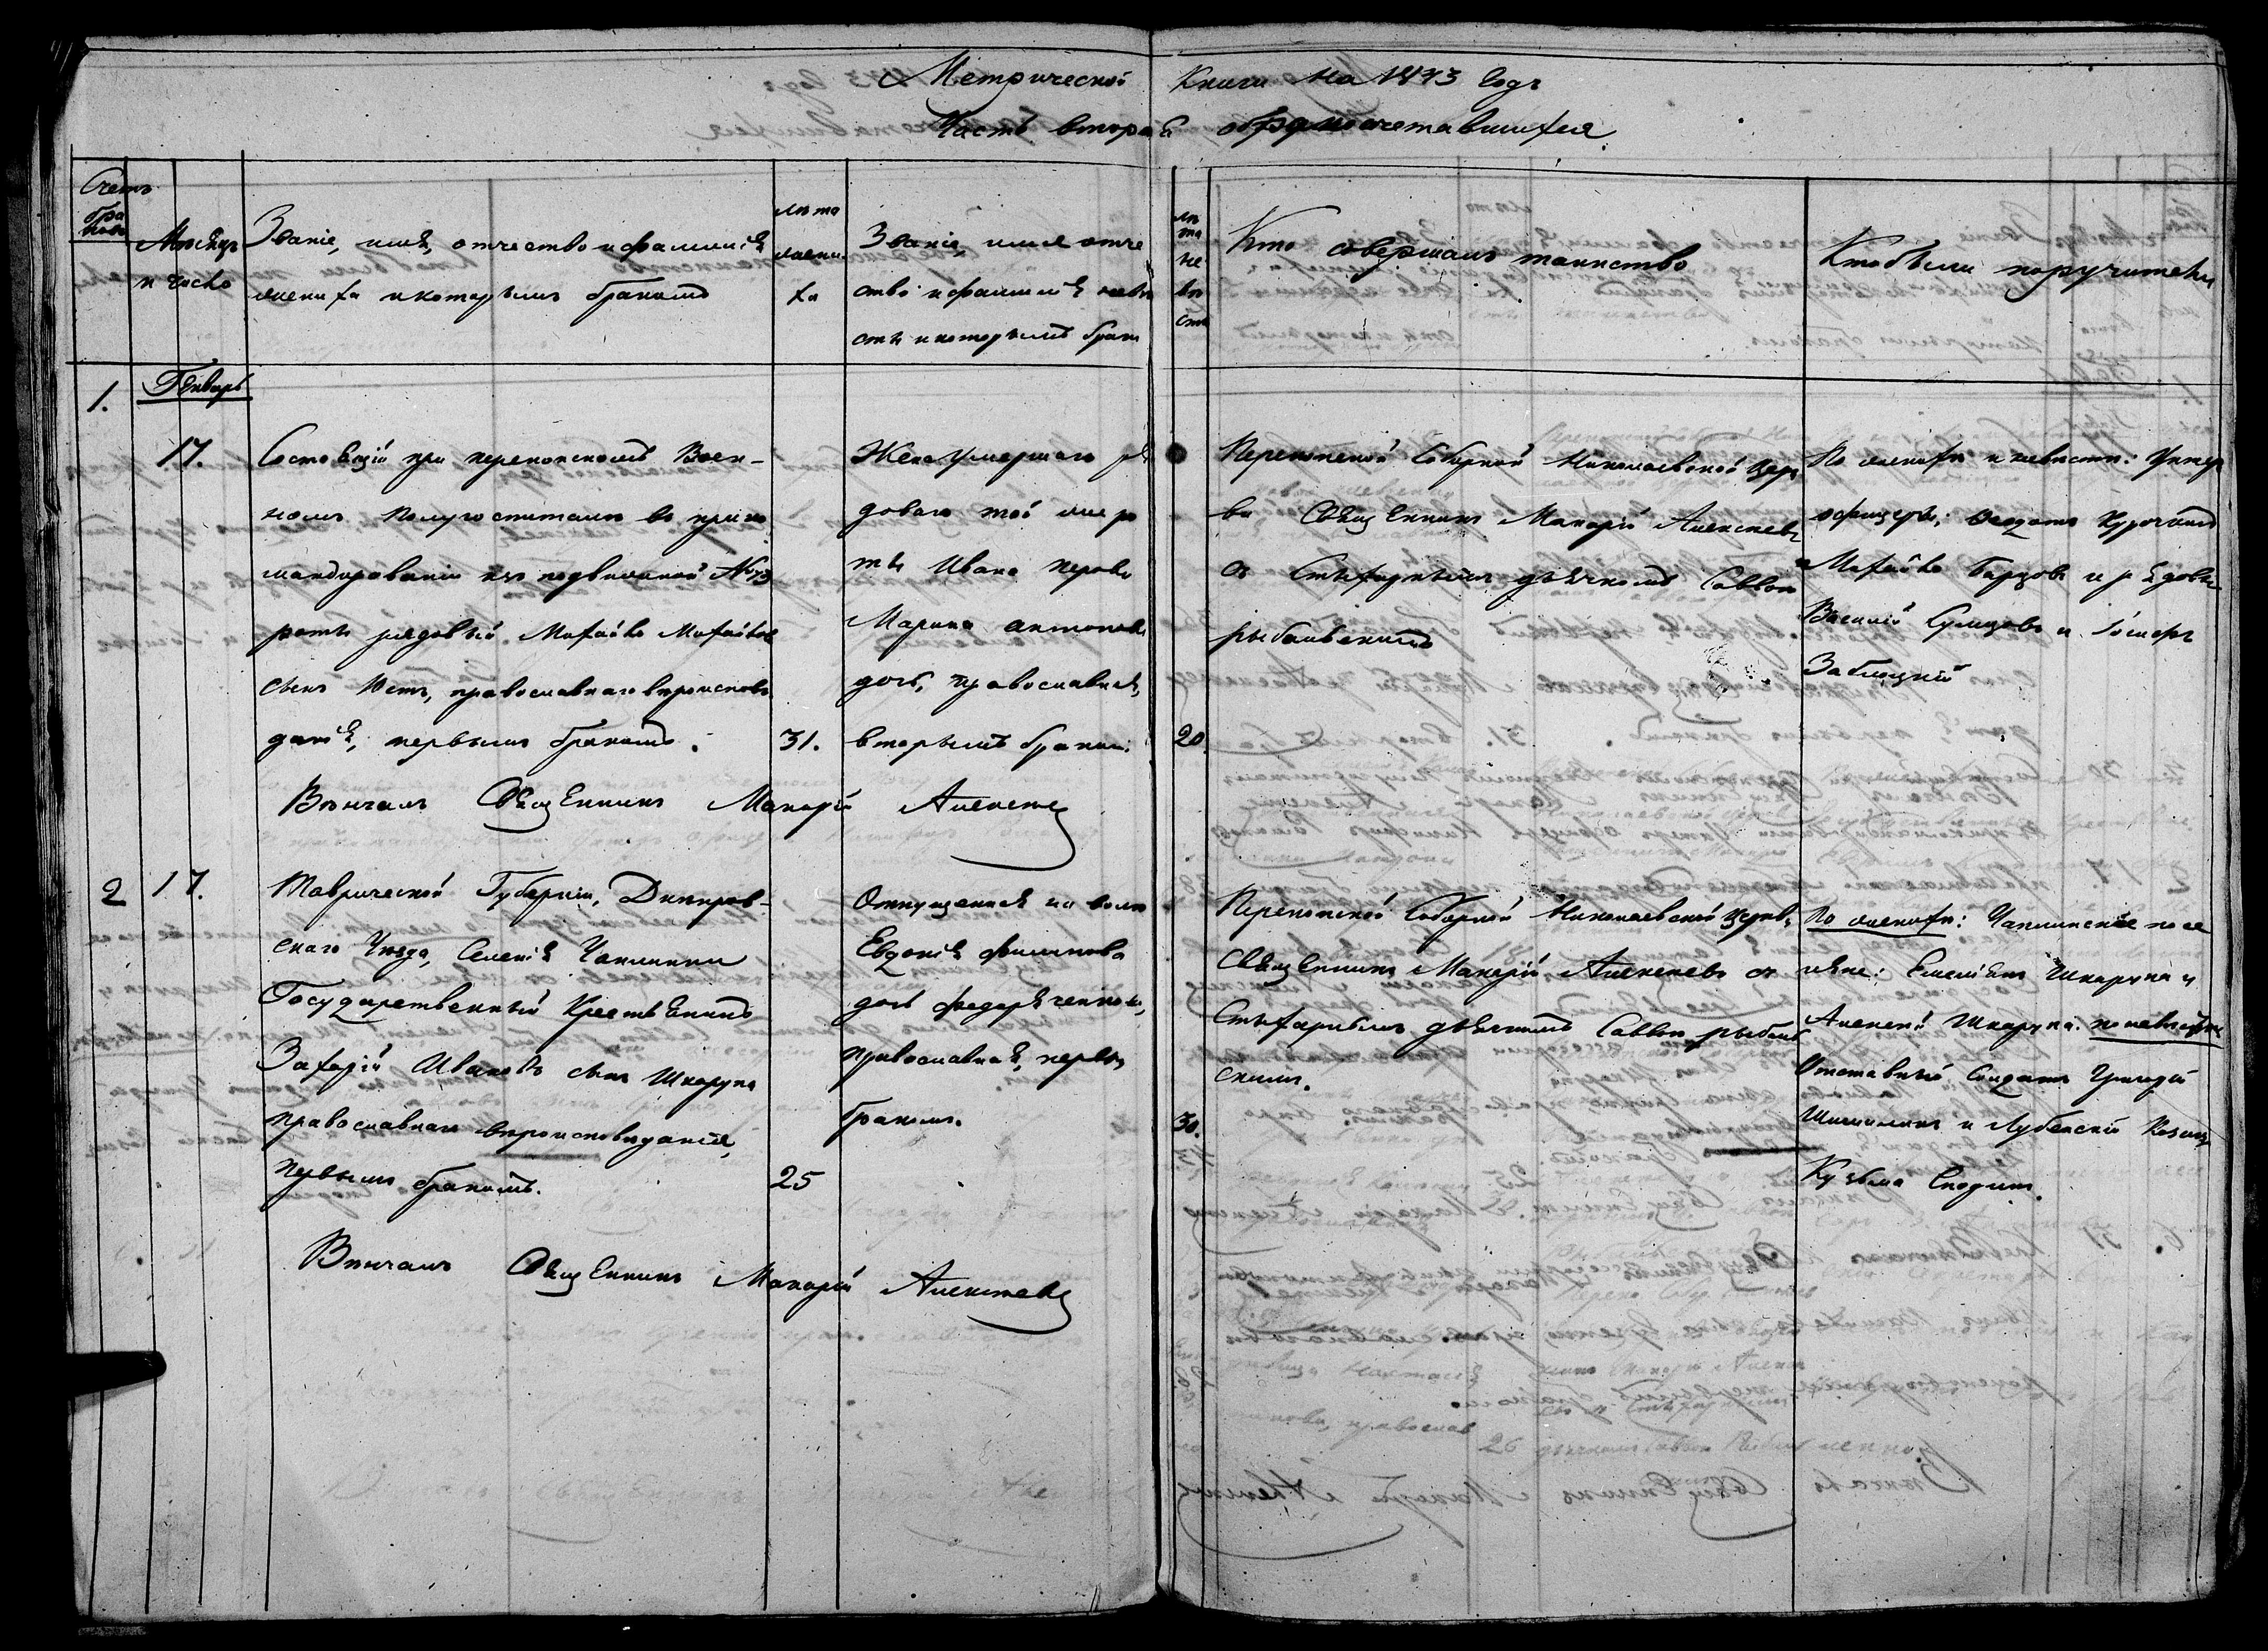 Метрической Книги на 1843 годъ
Часть вторая о бракосочетавшихся
Счетъ
бра
ковъ
Мѣсяцъ
и число
Званіе, имя, отчество и фамилія
жениха и которымъ бракомъ
лѣта
жени
ха
Званіе, имя отче
ство и фамилія невѣ
сты и которымъ брак
лѣ
та
не
вѣ
сты
Кто совершалъ таинство
Кто были поручители
1.
Генварь
17.
Состоящій при перекопскомъ Воен-
номъ полугоспиталѣ въ прико
мандированіи изъ подвижной №
роты рядовый Михайло Михайлов
сынъ православнаго вѣроисповѣ
данія, первымъ бракомъ.
31.
Жена умершаго ря
доваго той же ро
ты Ивана
Марина Антонова
дочь, православная,
вторымъ бракомъ.
20.
Перекопской Соборной Николаевской Церк
ви Священникъ Макарій Алексѣевъ
съ Стихарнымъ дьячкомъ Саввою
рыбальскимъ
По женихѣ и невѣстѣ: Унтер
офицеры;
Михайло и рядовые
Василій и
Заблоцкій
Вѣнчалъ Священникъ Макарій Алексѣевъ
2
17.
Таврической Губерніи, Днѣпров-
скаго Уѣзда, Селенія Чаплинки
Государственный Крестьянинъ
Захарій Ивановъ сынъ Шкарупа
православнаго вѣроисповѣданія,
первымъ бракомъ.
25
Отпущенная на волю
Евдокія Филипова
дочь Федоряченкова,
православная, первы
бракомъ.
30.
Перекопской Соборной Николаевской Церкви
Священникъ Макарій Алексѣевъ съ
Стихарнымъ дьячкомъ Саввою рыбаль
скимъ.
По женихѣ: Чаплинскіе посе
ляне: Емельянъ Шкарупа и
Алексѣй Шкарупа. по невѣстѣ
Отставный Солдатъ Григорій
и Лубенскій Козакъ
Кузьма
Вѣнчалъ Священникъ Макарій Алексѣевъ